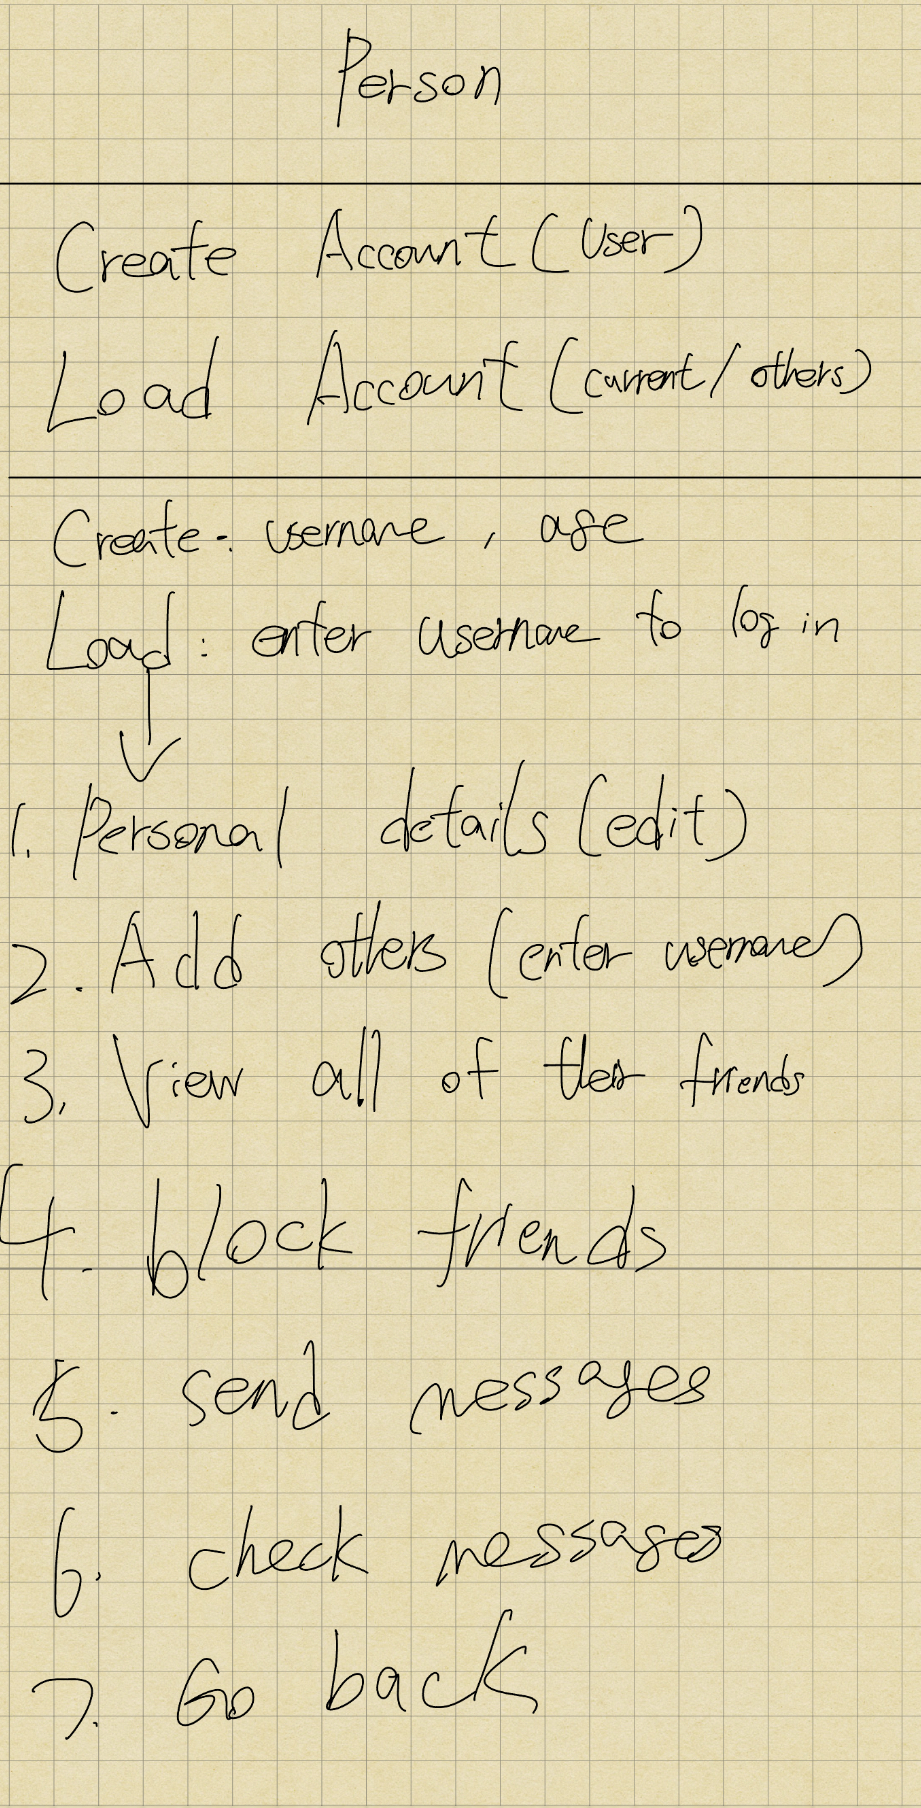 Person
Create Account (User)
Load Account (current / others)
Create: username, age
Load: enter username to log in
1. Personal details (edit)
2. Add others (enter username)
3. View all of their friends
4. block friends
5. send messages
6. check messages
7. Go back